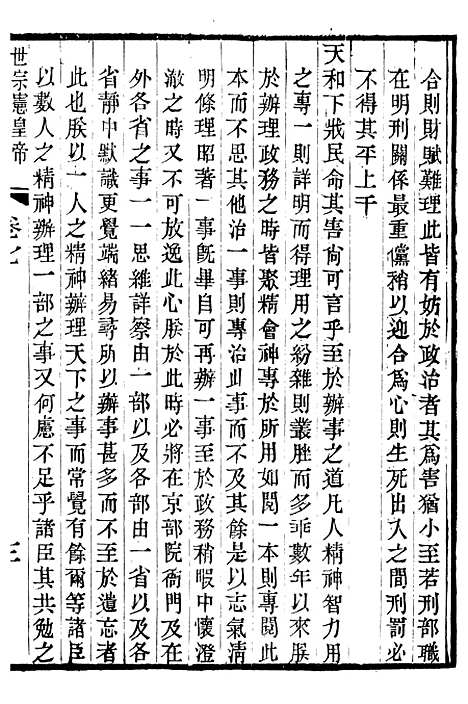 合則財賦難理此皆有妨於政治者其為害猶小至若刑部職
在明刑關係最重儻稍以迎合為心則生死出入之間刑罰必
不得其平上干
天和下戕民命其害尙可言乎至於辦事之道凡人精神智力用
之專一則詳明而得理用之紛雜則叢脞而多乖數年以來朕
於辦理政務之時皆聚精會神專於所用如閱一本則專閱此
本而不思其他治一事則專治此事而不及其餘是以志氣淸
明條理昭著一事旣畢自可再辦一事至於政務稍暇中懷澄
澈之時又不可放逸此心朕於此時必將在京部院衙門及在
外各省之事一一思維詳察由一部以及各部由一省以及各
省靜中默識更覺端緒易尋所以辦事甚多而不至於遺忘者
此也朕以一人之精神辦理天下之事而常覺有餘爾等諸臣
以數人之精神辦理一部之事又何慮不足乎諸臣其共勉之
世宗憲皇帝 卷七 三